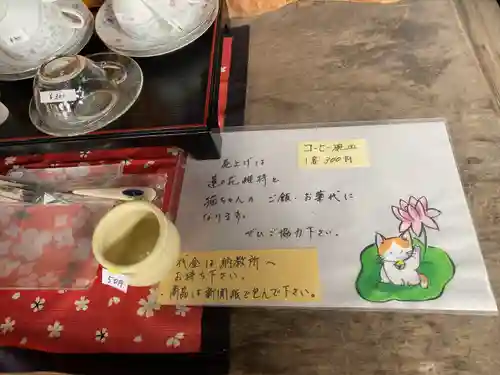 売上げは
蓮の花維持と
猫ちゃんの ご飯・お薬代に
なります。
ぜひご協力下さい。
コーヒー豆
1客 300円
代金は納教所へ
お持ち下さい。
・商品は新聞紙で包んで下さい。
50円